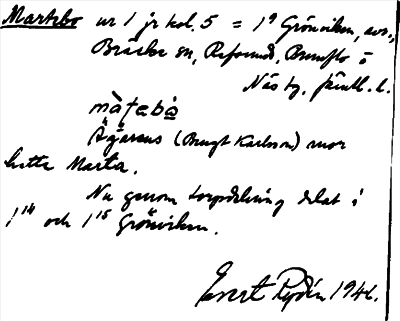 Martebo ur 1 jr kol. 5 = 1⁹ Grönviken, avs.,
Bräcke sn, Refsunds, Brunflo o
Näs tg, Jämtl. l.
màṭebò
Ägarens (Bengt Karlsson) mor
hette Marta.
Nu genom torpdelning delat i
1¹⁴ och 1¹⁵ Grönviken.
Evert Rydén 1946.